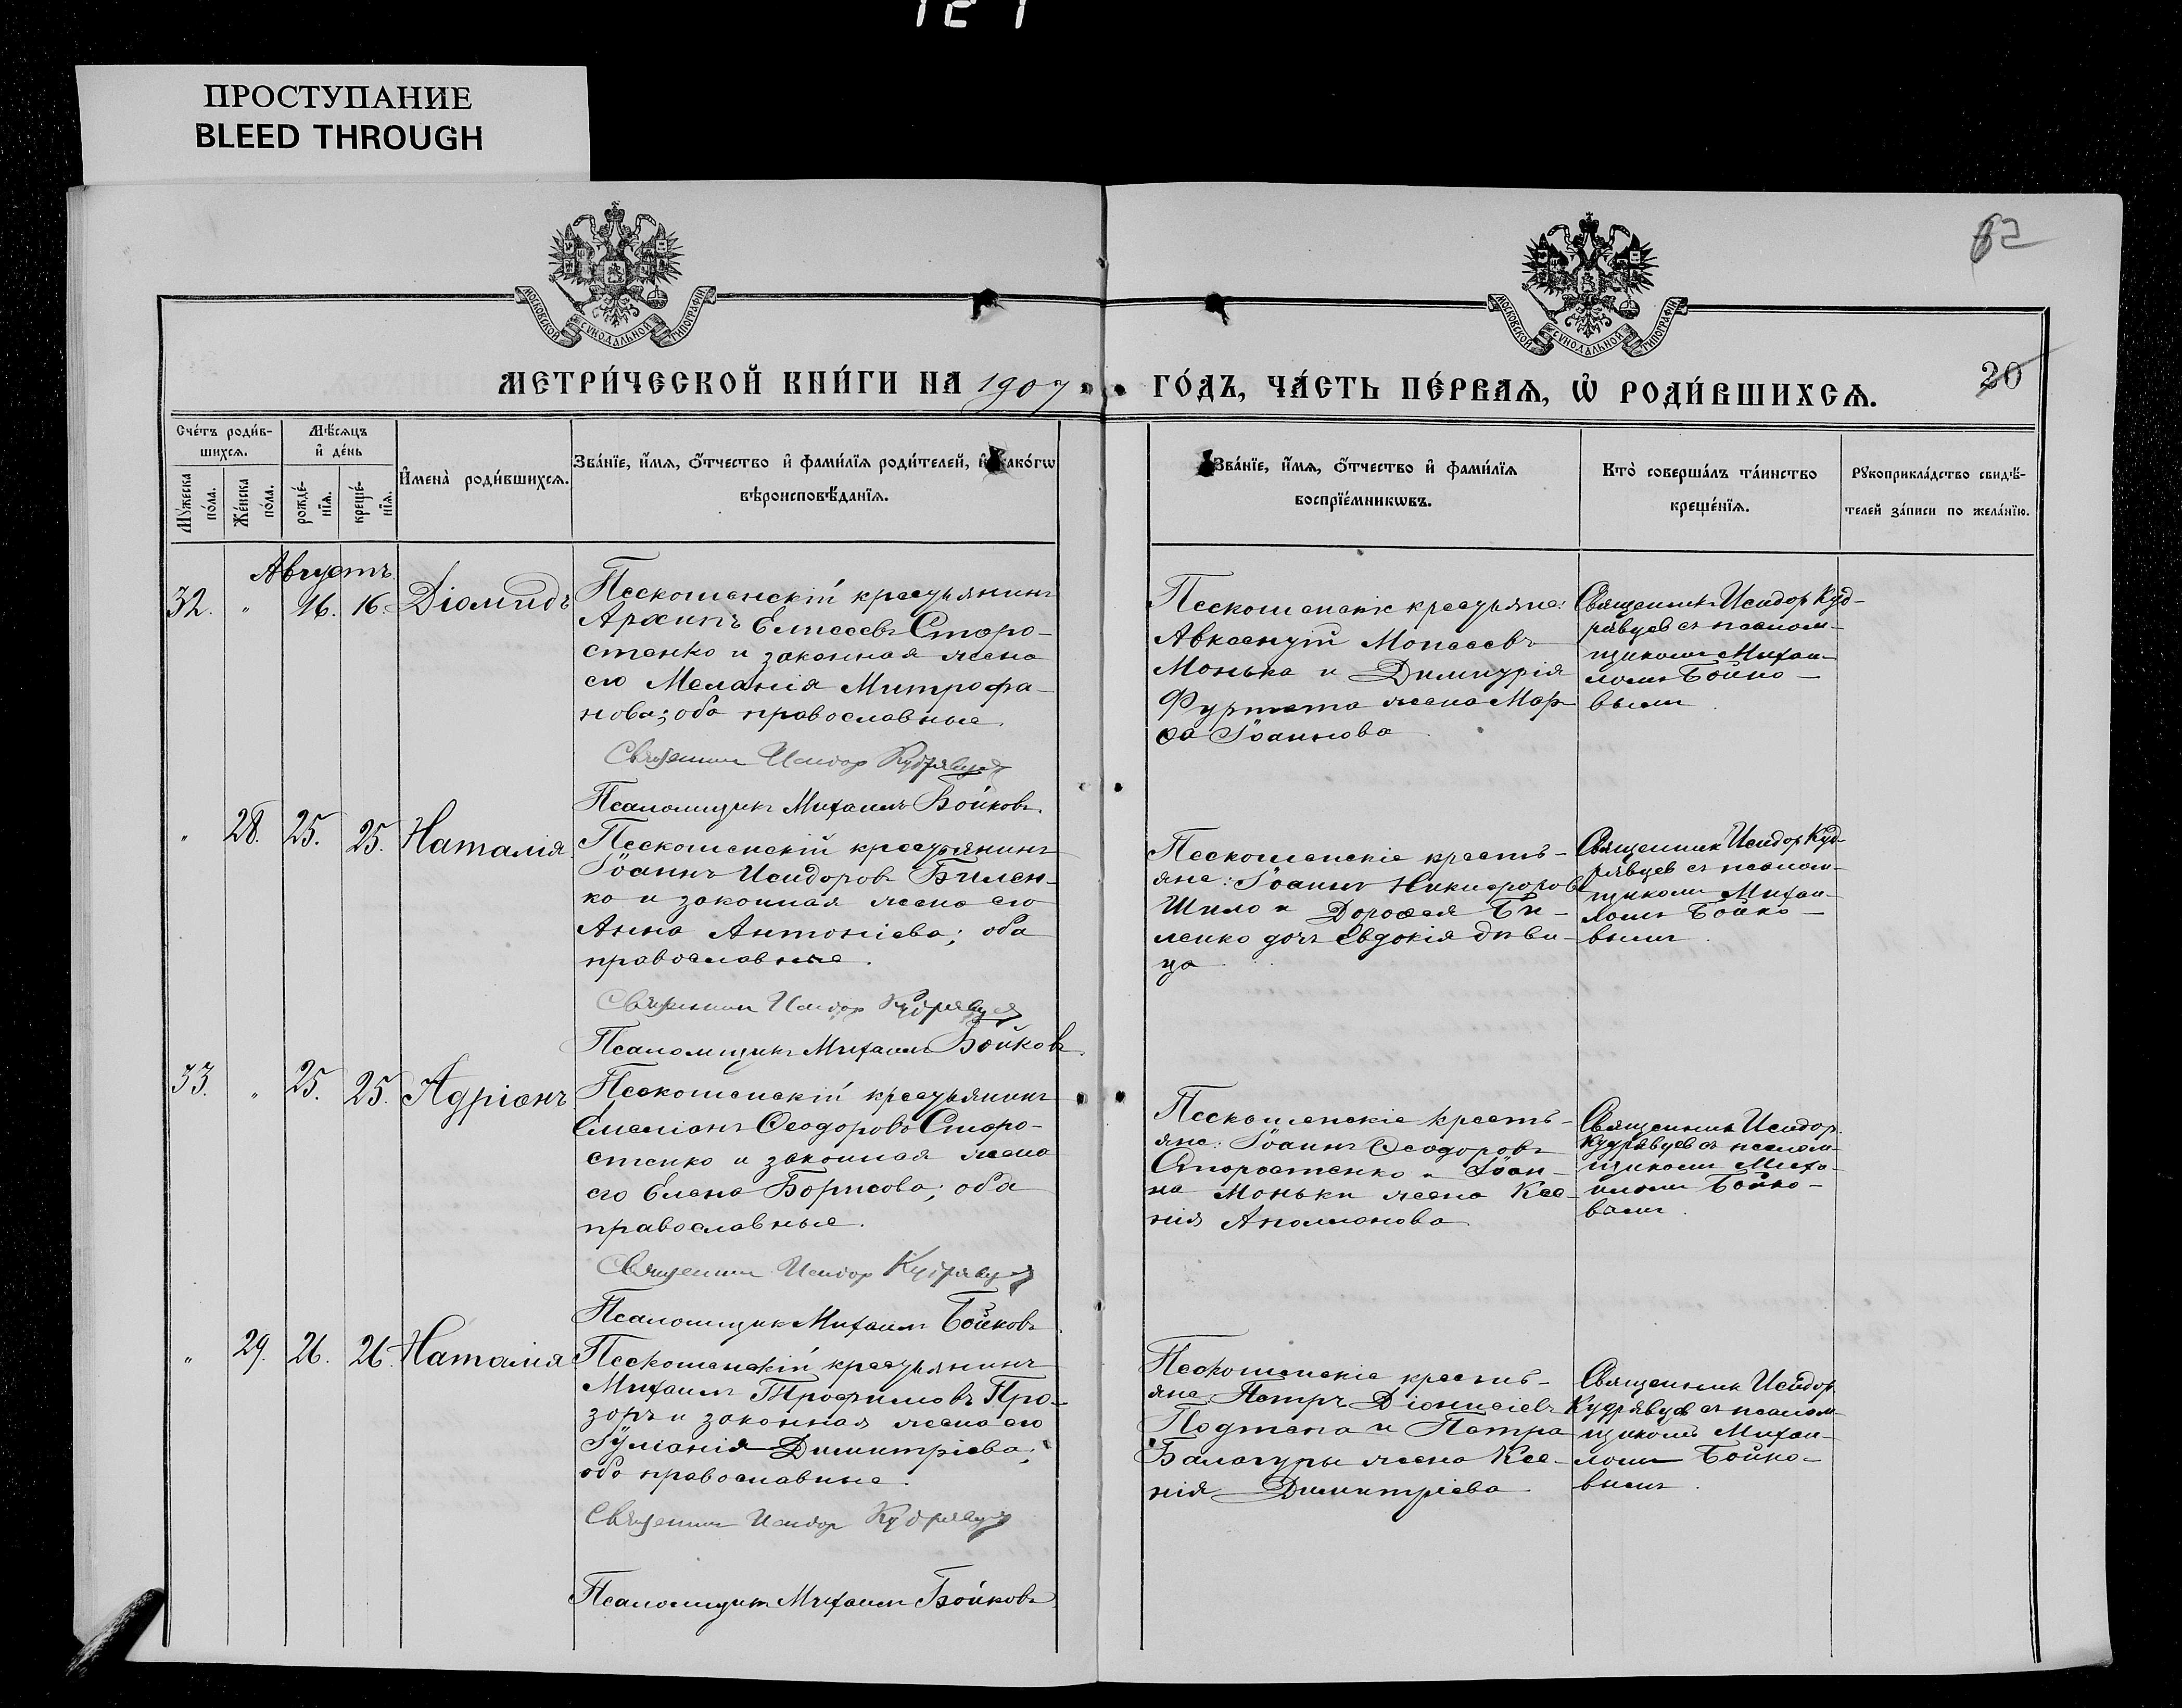 ПРОСТУПАНИЕ
BLEED THROUGH
МОСКОВСКОЙ СѴНОДАЛЬНОЙ ТИПОГРАФІИ
МОСКОВСКОЙ СѴНОДАЛЬНОЙ ТИПОГРАФІИ
62
МЕТРИ́ЧЕСКОЙ КНИ́ГИ НА 1907
ГО́ДЪ, ЧА́СТЬ ПЕ́РВАѦ, Ѡ҆ РОДИ́ВШИХСѦ.
20
Сче́тъ роди́в-
шихсѧ.
Мѣ́сѧцъ
и҆ де́нь
Мꙋ́жеска
по́ла.
Же́нска
по́ла.
рожде́-
нїѧ.
креще́-
нїѧ.
И҆мена̀ роди́вшихсѧ.
Зва́нїе, и҆́мѧ, ѻ҆́тчество и҆ фами́лїѧ роди́телей, и҆ како́гѡ
вѣроисповѣ́данїѧ.
Зва́нїе, и҆́мѧ, ѻ҆́тчество и҆ фами́лїѧ
воспрїе́мникѡвъ.
Кто̀ соверша́лъ та́инство
креще́нїѧ.
Рꙋкоприкла́дство свидѣ́-
телей за́писи по жела́нїю.
Августъ.
32. " 16. 16. Діомидъ
Пескошенскій крестьянинъ
Архипъ Елисеевъ Старо-
стенко и законная жена
его Меланія Митрофа-
нова; оба православные.
Священникъ Исидор Кудрявцев
Псаломщикъ Михаилъ Бойковъ.
Пескошенскіе крестьяне:
Авксентій Моисеевъ
Монька и Димитрія
жена Мар-
ѳа Іоаннова
Священникъ Исидор Куд-
рявцев съ псалом-
щикомъ Михаи-
ломъ Бойко-
вымъ.
" 28. 25. 25. Наталія.
Пескошенскій крестьянинъ
Іоаннъ Исидоровъ Билен-
ко и законная жена его
Анна Антоніева; оба
православные.
Священникъ Исидор Кудрявцев
Псаломщикъ Михаилъ Бойковъ.
Пескошенскіе кресть-
яне: Іоаннъ Никифоровъ
Шило и Дороѳея Би-
ленко дочь Евдокія дѣви-
ца
Священник Исидор Куд-
рявцев съ псалом-
щикомъ Михаи-
ломъ Бойко-
вымъ.
33. " 25. 25. Адріанъ
Пескошенскій крестьянинъ
Емеліанъ Ѳеодоровъ Старо-
стенко и законная жена
его Елена Борисова; оба
православные.
Священникъ Исидор Кудрявцев
Псаломщикъ Михаилъ Бойковъ
Пескошенскіе кресть-
яне: Іоаннъ Ѳеодоровъ
Старостенко и Іоан-
на Моньки жена Ксе-
нія Аполлонова
Священник Исидор
Кудрявцев съ псалом-
щикомъ Миха-
иломъ Бойко-
вымъ.
" 29. 26. 26. Наталія
Пескошенскій крестьянинъ
Михаилъ Трофимовъ Про-
зоръ и законная жена его
Іуліанія Димитріева;
оба православные.
Священникъ Исидор Кудрявцев
Псаломщикъ Михаилъ Бойковъ
Пескошенскіе кресть-
яне Петръ Діонисіевъ
и Петра
Балагуры жена Ксе-
нія Димитріева
Священник Исидор
Кудрявцев съ псалом-
щикомъ Михаи-
ломъ Бойко-
вымъ.